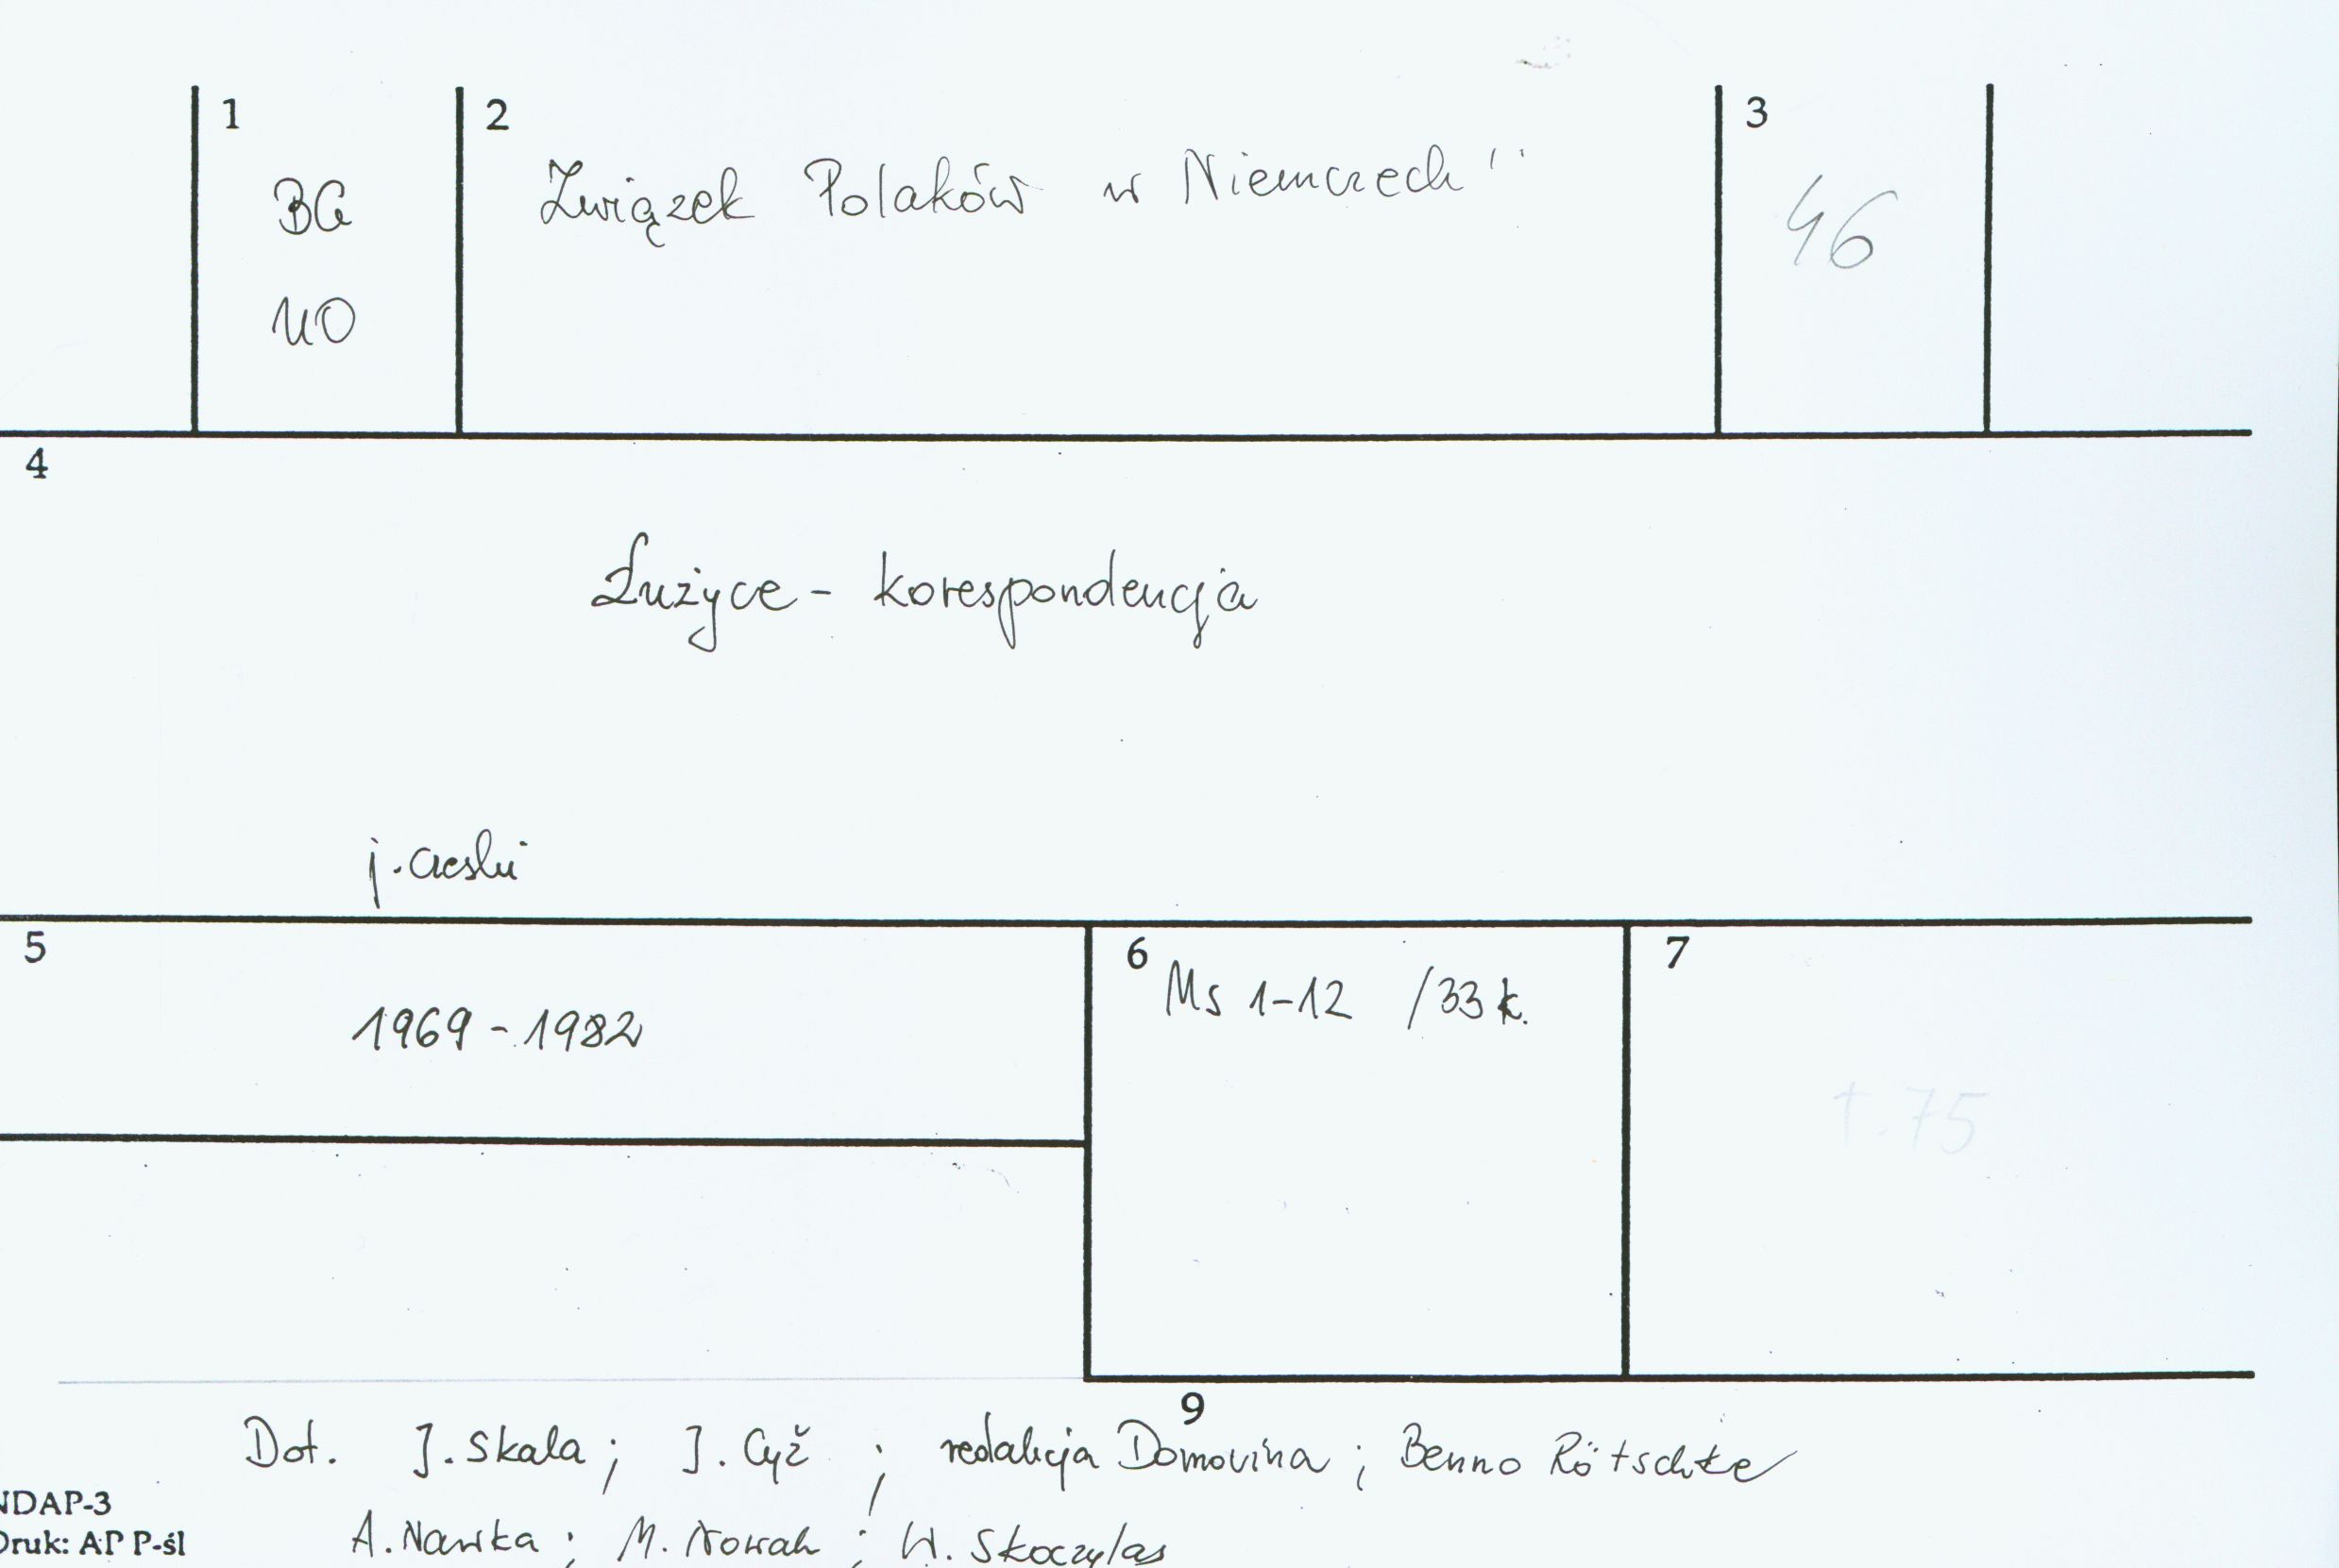 1
2
3
BG
UO
Związek Polaków w Niemczech"
46
4
Łużyce - korespondencja
j. czeski
5
1969 - 1982
6
Ms 1-12 /33 k.
7
t. 75
9
Dot. J. Skala ; J. Cyž ; redakcja Domovina ; Benno Rötschke
NDAP-3
A. Nawka ; M. Nowak ; W. Skoczylas
Druk: AP P-śl